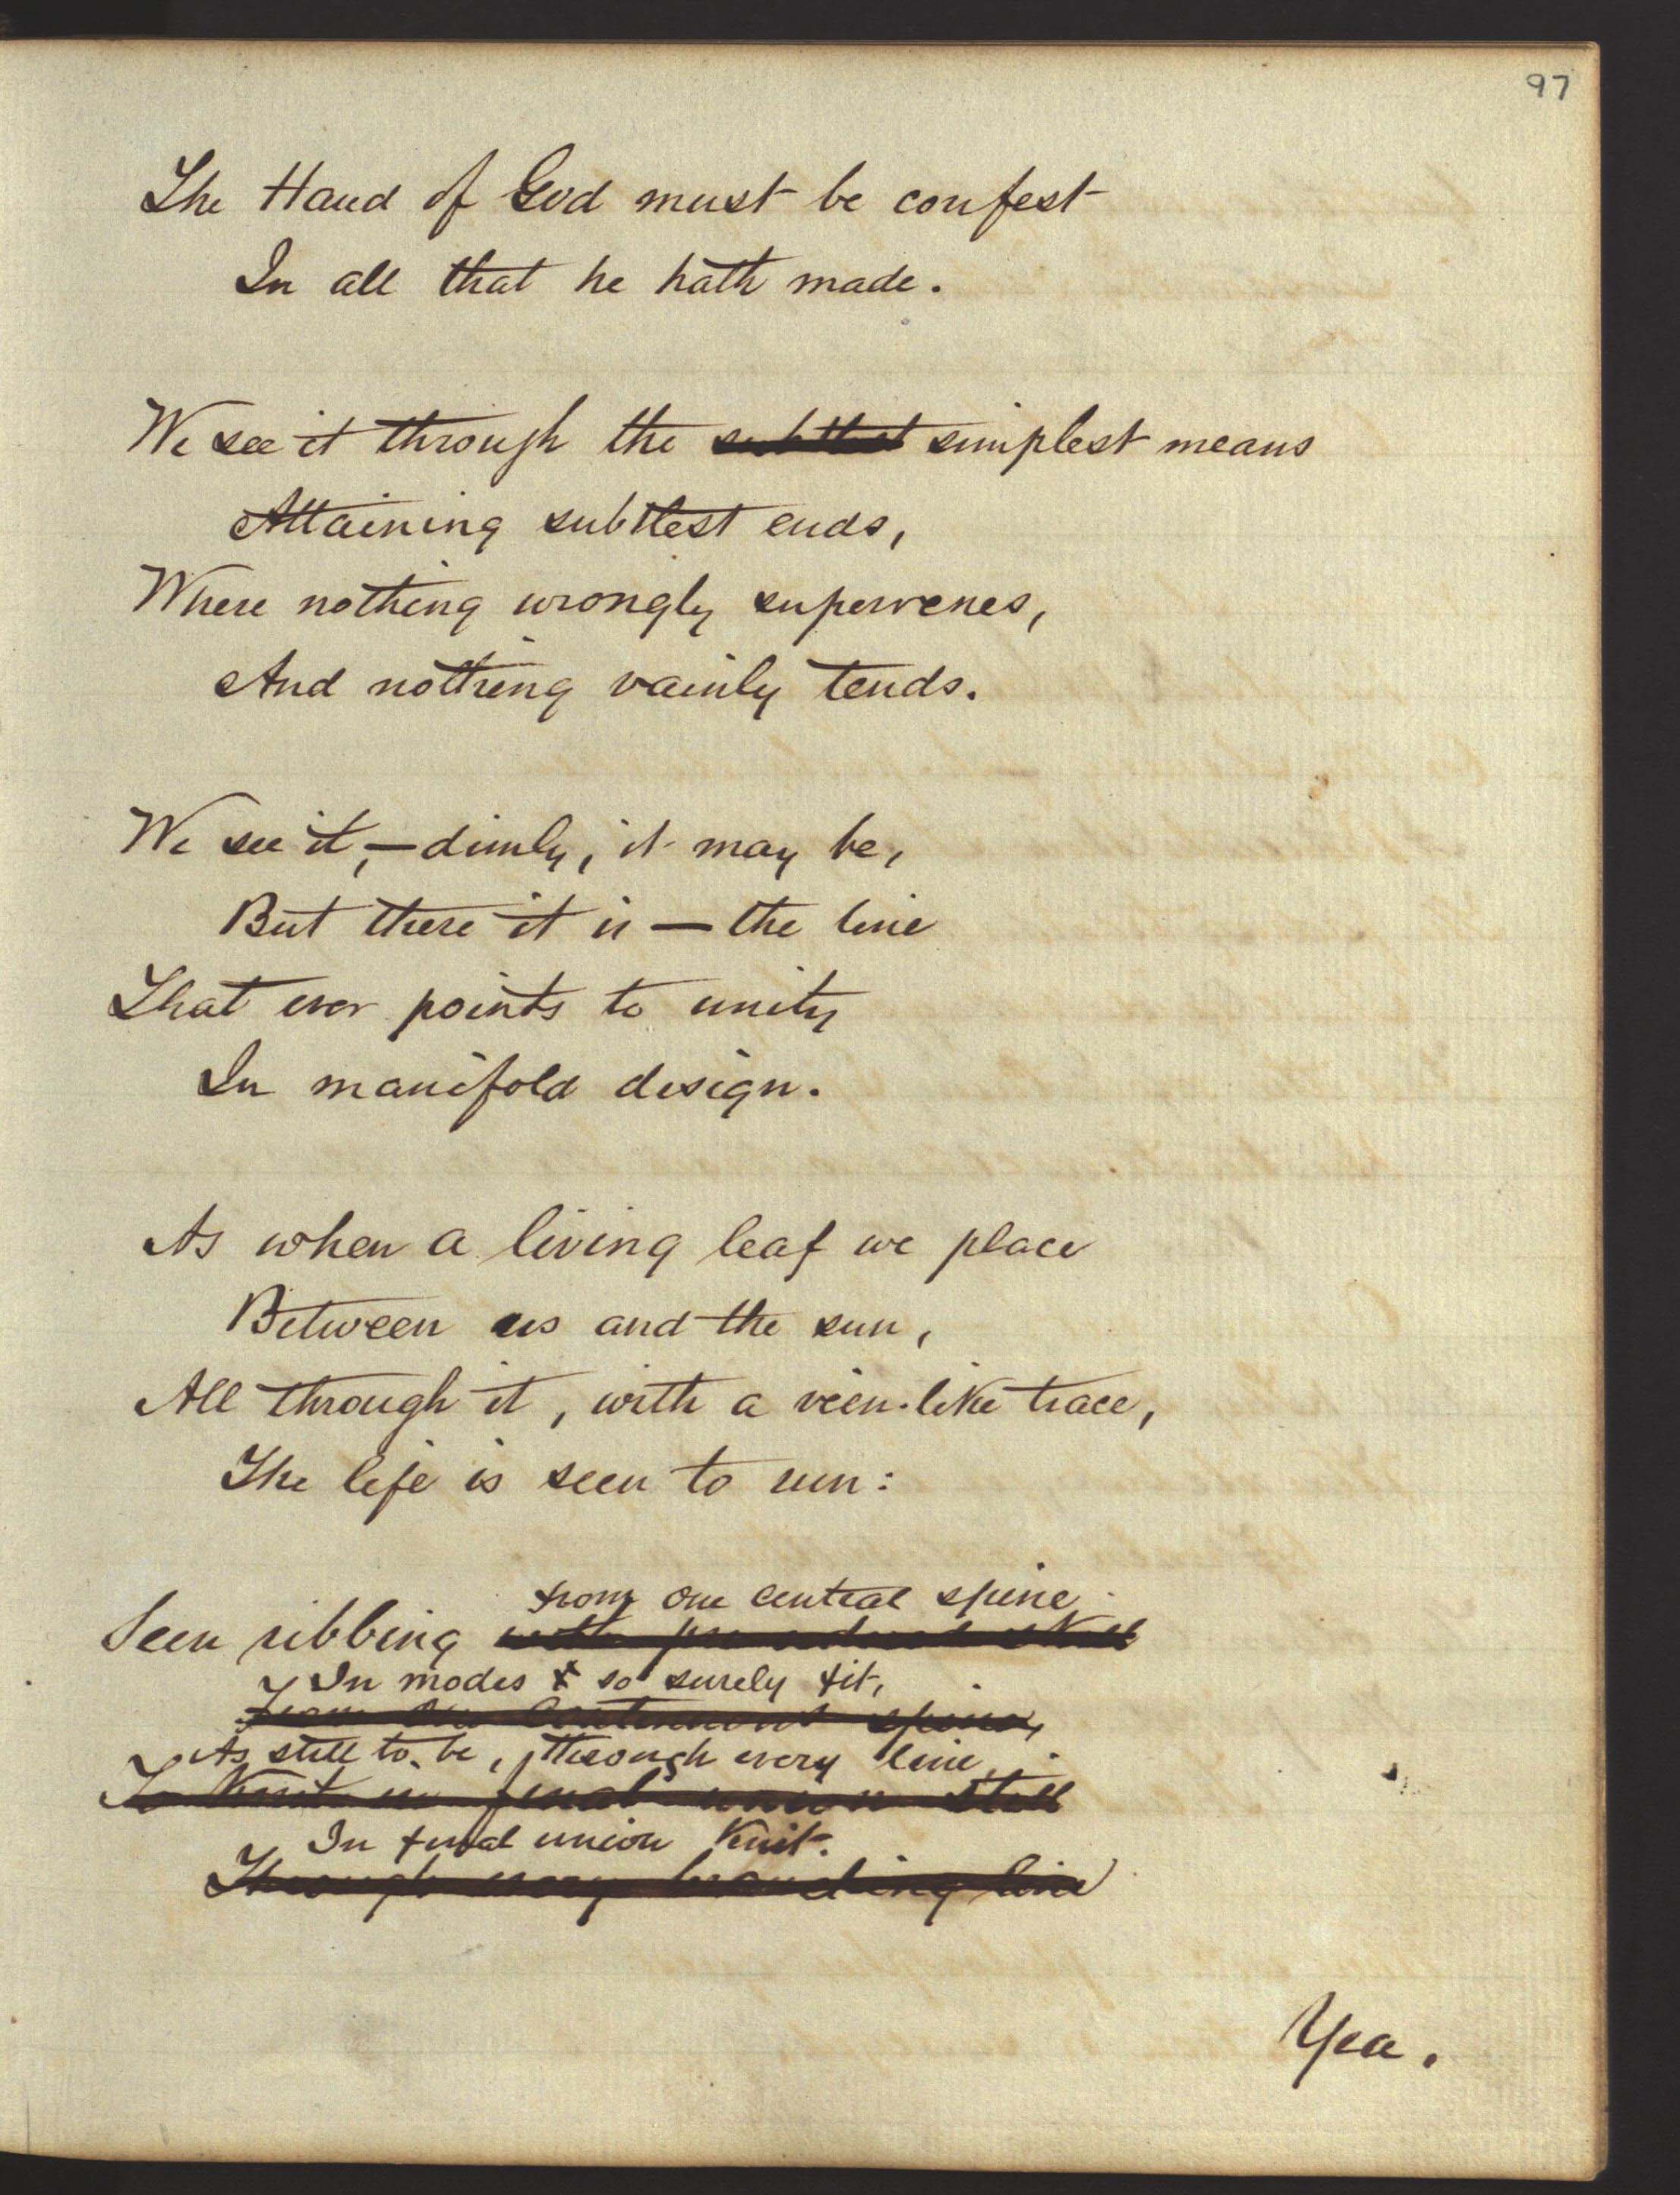 97
The Hand of God must be confest
In all that he hath made.
We see it through the subtlest simplest means
Attaining subtlest ends,
Where nothing wrongly supervenes,
And nothing vainly tends.
We see it,—dimly, it may be,
But there it is — the line
That ever points to unity
In manifold design.
As when a living leaf we place
Between us and the sun,
All through it, with a vein-like trace,
The life is seen to run:
from one central spine
Seen ribbing with
In modes so surely fit,
From one continuous spine,
As still to be, through every line,
To knit in final union still
In final union knit.
Through every branching line
Yea,